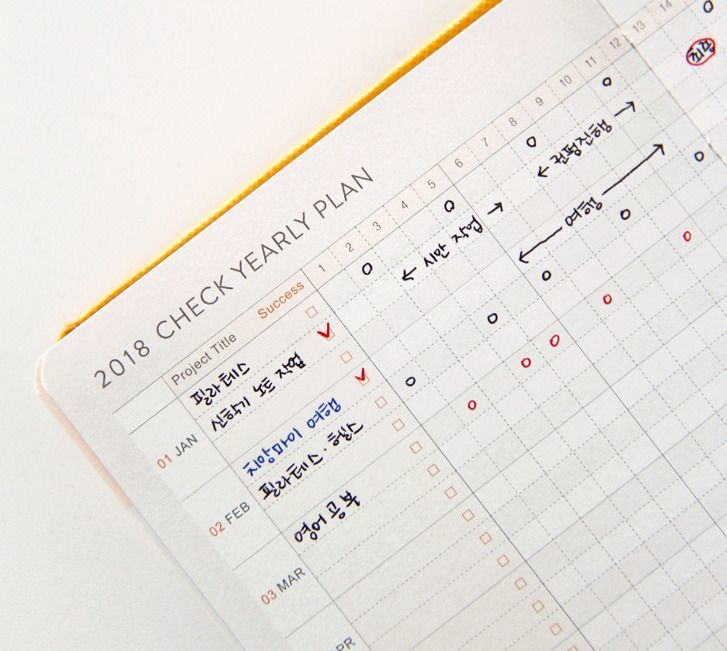 2018 CHECK YEARLY PLAN
Project Title Success 1 2 3 4 5 6 7 8 9 10 11 12 13 14
01 JAN
필라테스
신학기 노트 작업 ← 시안 작업 →
02 FEB
치앙마이 여행 ← 여행 →
필라테스 · 헬스
영어공부
03 MAR
PR